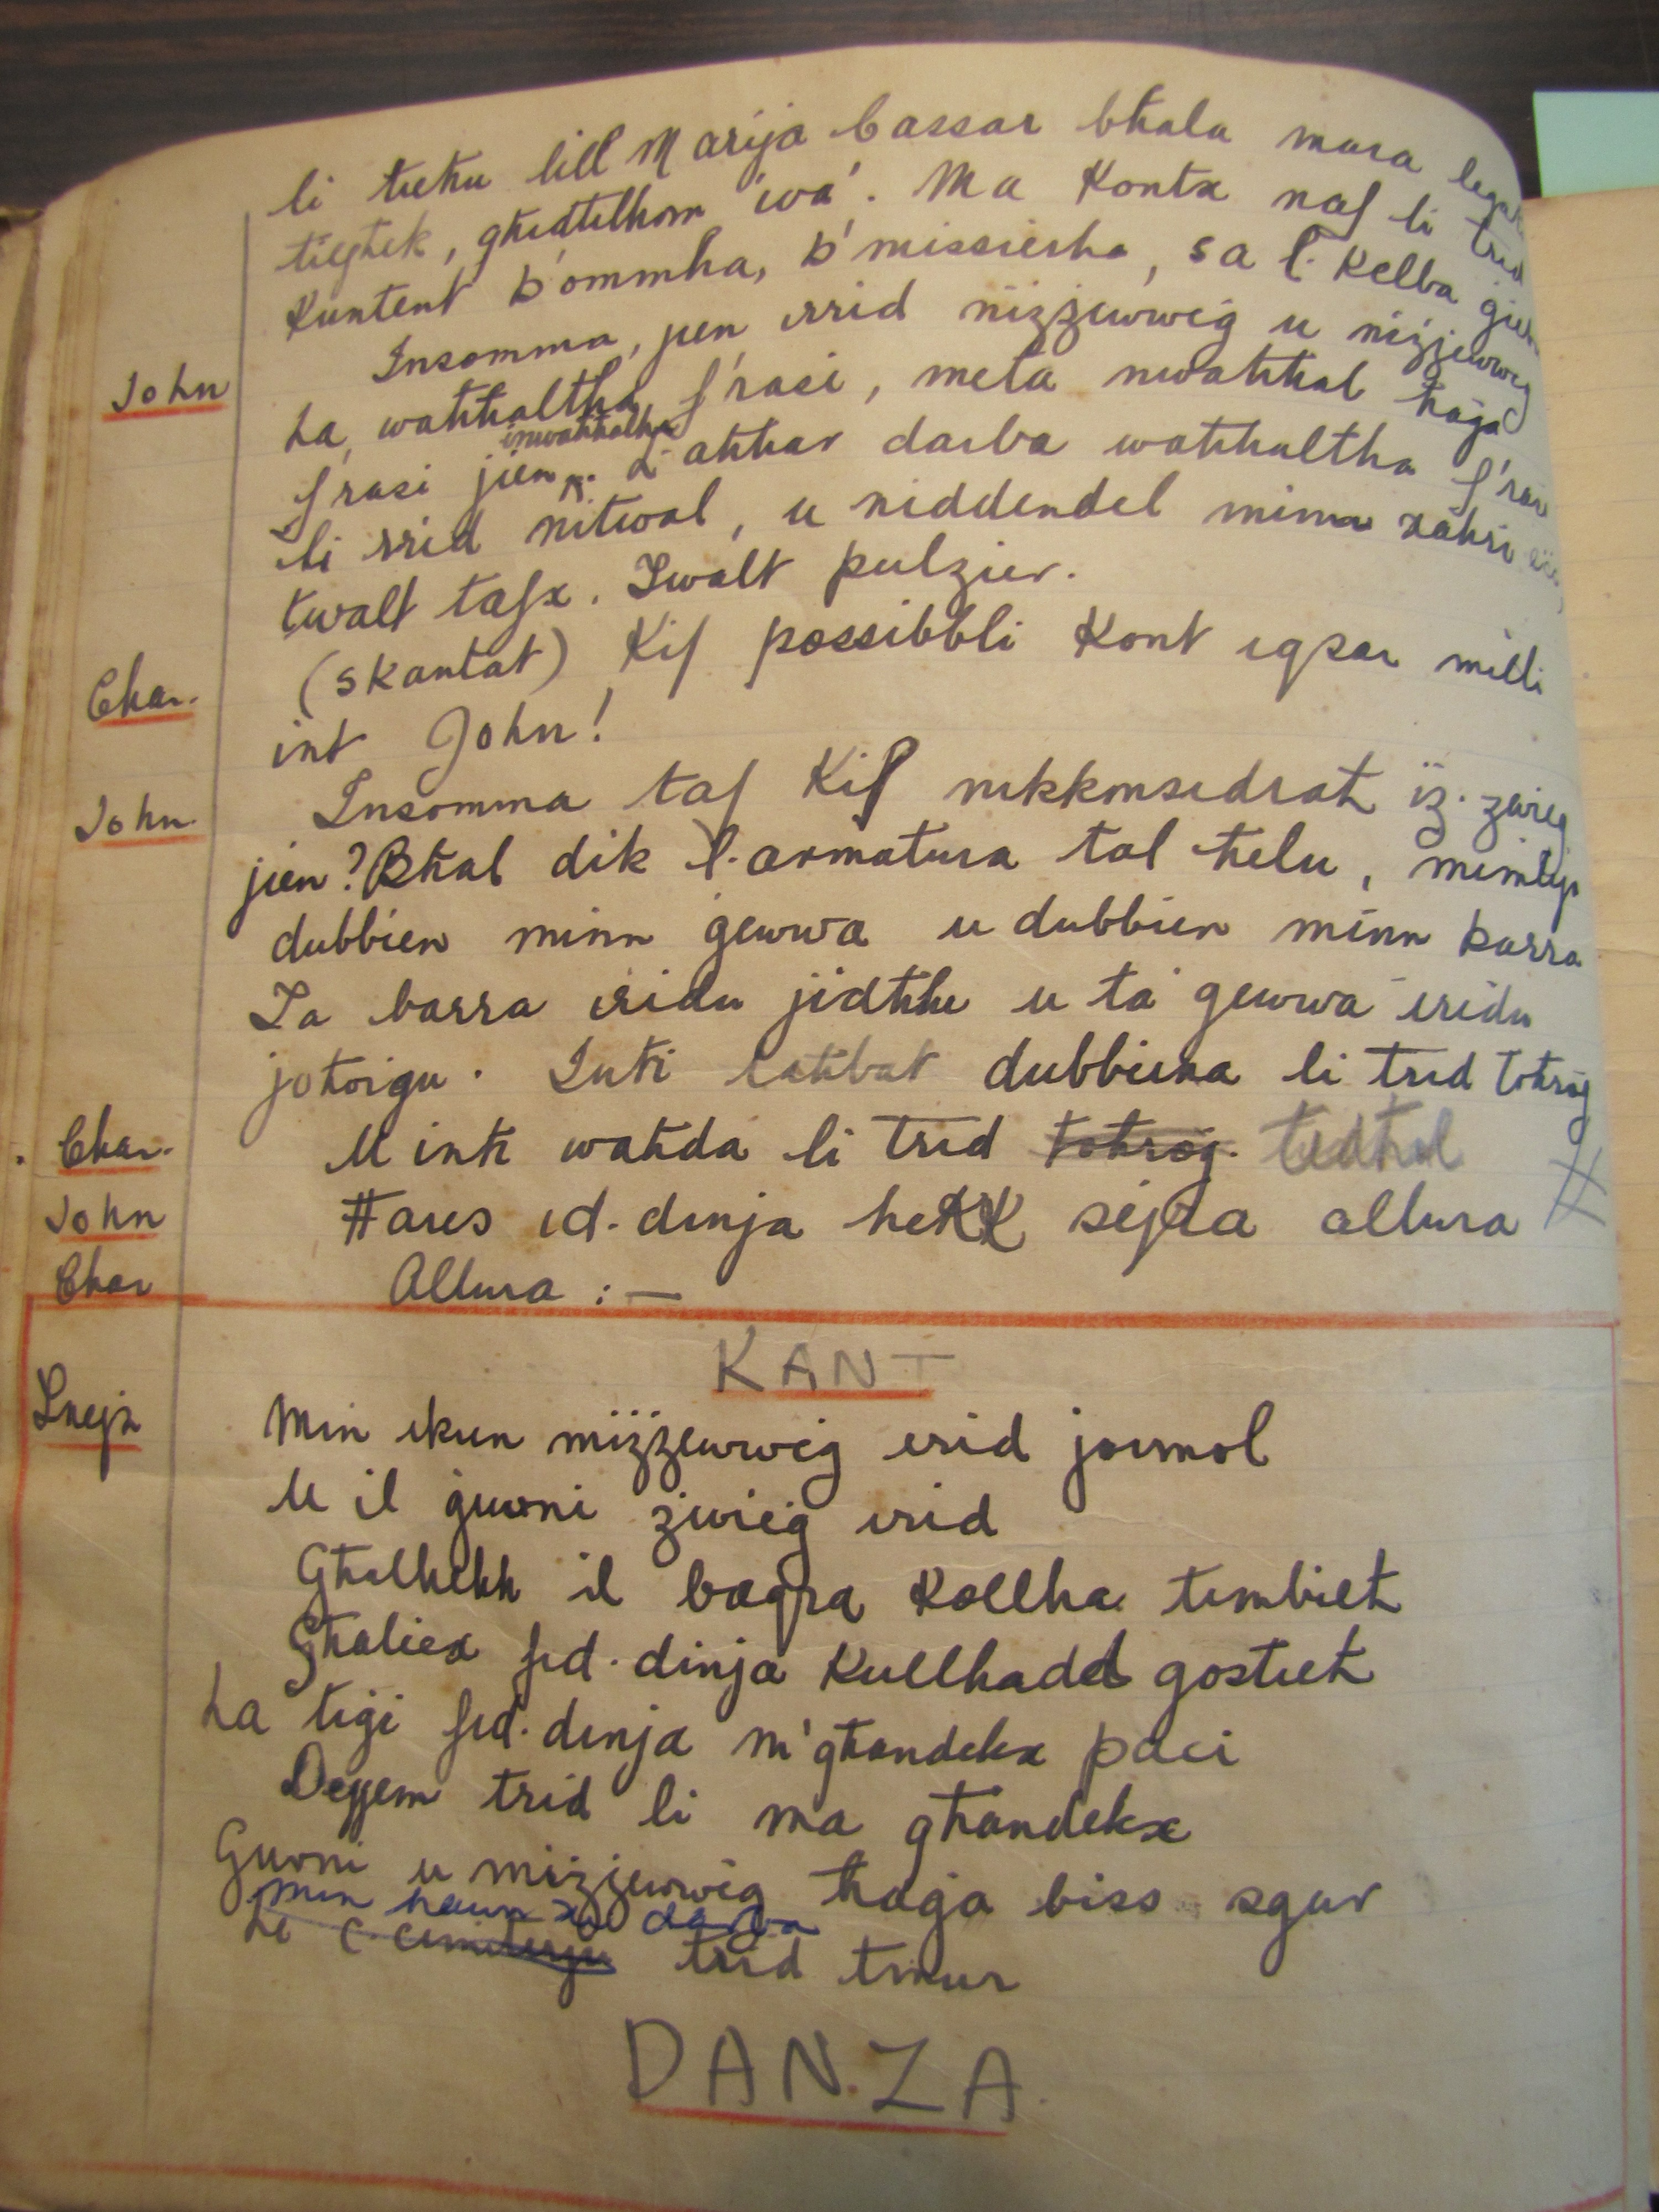 li tieħu lill Marija Cassar bħala mara
tiegħek, għedtilhom 'iva'. Ma Kontx naf li trid
Kuntent b'ommha, b'missierha, sa l-Kelba
John Insomma, jien irrid niżżewweġ u niżżewweġ
La waħħaltha f'rasi, meta nwaħħal ħaġa
f'rasi jien inwaħħalha. L-aħħar darba waħħaltha f'rasi
li rrid nitwal, u niddendel minn xahri
twalt tafx. Twalt pulzier.
Char. (skantat) Kif possibbli Kont iqsar milli
int John!
John. Insomma taf Kif nikkonsidrah iż-żwieġ
jien? Bħal dik l-armatura tal ħelu, mimlija
dubbien minn ġewwa u dubbien minn barra
Ta barra iridu jidħlu u ta' ġewwa iridu
joħorġu. Inti laħbat dubbiena li trid toħroġ
Char. U inti waħda li trid toħroġ. tidħol
John Ħares id-dinja hekk sejra allura
Char Allura :—
KANT
Tnejn Min ikun miżżewweġ irid jarmol
U il ġuvni żwieġ irid
Għalhekk il baqra Kollha timbieħ
Għaliex fid-dinja Kullħadd gostieħ
La tiġi fid-dinja m'għandekx paci
Dejjem trid li ma għandekx
Ġuvni u miżżewweġ ħaġa biss sgur
minn hawn xi darba
Li ċ-ċimiterju trid tmur
DANZA.